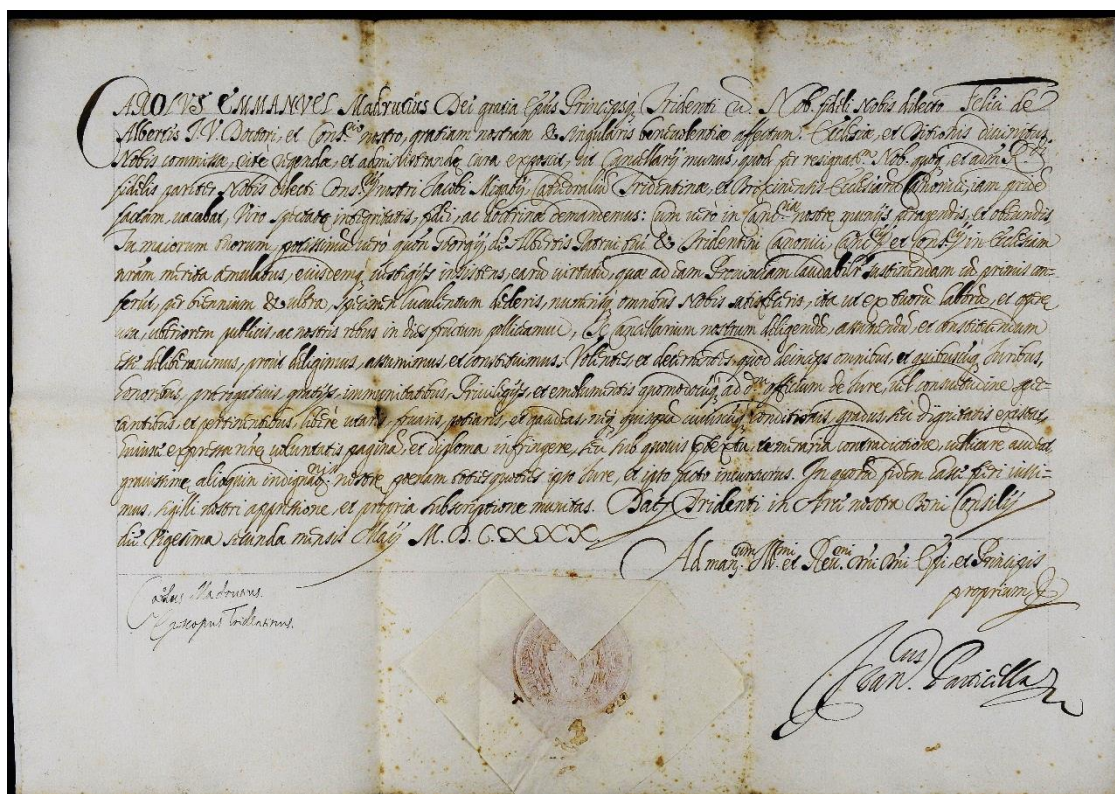 CAROLVS EMMANVEL Madrutius Dei gratia Epūs Princepsq; Tridenti &c. Nob. fideli Nobis dilecto Felici de
Albertis I. V. Doctori, et Cons.rio nostro, gratiam nostram & singularis beneuolentiæ affectum. Ecclesiæ, et Ditionis diuinitus
Nobis commissæ, rite regendæ, et administrandæ cura exposcit, ut Cancellarij munus, quod per resignat.m Nob. quoq; et adm. R.di
fidelis pariter Nobis dilecti Cons.rij nostri Jacobi Migatij Cathedralium Tridentinæ, et Brixinensis Ecclesiarū Canonici, iam pridē
factam, uacabat, Viro spectatæ integritatis, fidei, ac doctrinæ demandemus: cum uerò in Canc.riæ nostræ munijs peragendis, et obeundis
Tu maiorum tuorum, potissimū uerò quōn de Albertis Patrui tui & Tridentini Canonici, Canc.rij et Cons.rij in Ecclesiam
nr̄am merita æmulatus, eiusdemq; uestigijs insistens, earū uirtutū, quæ ad eam Prouinciam laudabilr̄ sustinendam cū primis con-
ferūt, per biennium & ultra, specimen luculentum dederis, numerisq; omnibus Nobis satisfeceris, ita ut ex tuorū laborū, et operæ
usu, uberiorem publicis, ac nostris rebus in dies fructum polliceamur, Te Cancellarium nostrum deligendū, assumendū, et constituendum
esse deliberauimus, prout deligimus, assumimus, et constituimus: Volentes, et decernentes, quod deinceps omnibus, et quibuscūq; Iuribus,
honoribus, prærogatiuis, gratijs, immunitatibus, Priuilegijs, et emolumentis quomodocūq; ad officium de Iure, uel consuetudine spec-
tantibus, et pertinentibus, liberè utaris, fruaris, potiaris, et gaudeas, neq; quisque cuiuscūq; conditionis, gradus, seu dignitatis existens,
huiusc̄ expressæ nr̄æ uoluntatis paginā, et diploma infringere, seu sub quouis prætextu, temeraria contradictione, uellicare audeat,
grauissimæ alioquin indignat.nis nostræ poenam toties quoties ipso Iure, et ipso facto incursurus. In quorū fidem has fieri iussi-
mus, sigilli nostri appensione, et propria subscriptione munitas. Dat. Tridenti in Arce nostra Boni Consilij
die Vigesima secunda mensis Maij M. D. C. XXX.
Ad man.tum Ill.mi et Reu.mi Dn̄i Dn̄i Epī, et Principis
proprium &c
Carolus Madrutius
Episcopus Tridentinus.
Particella